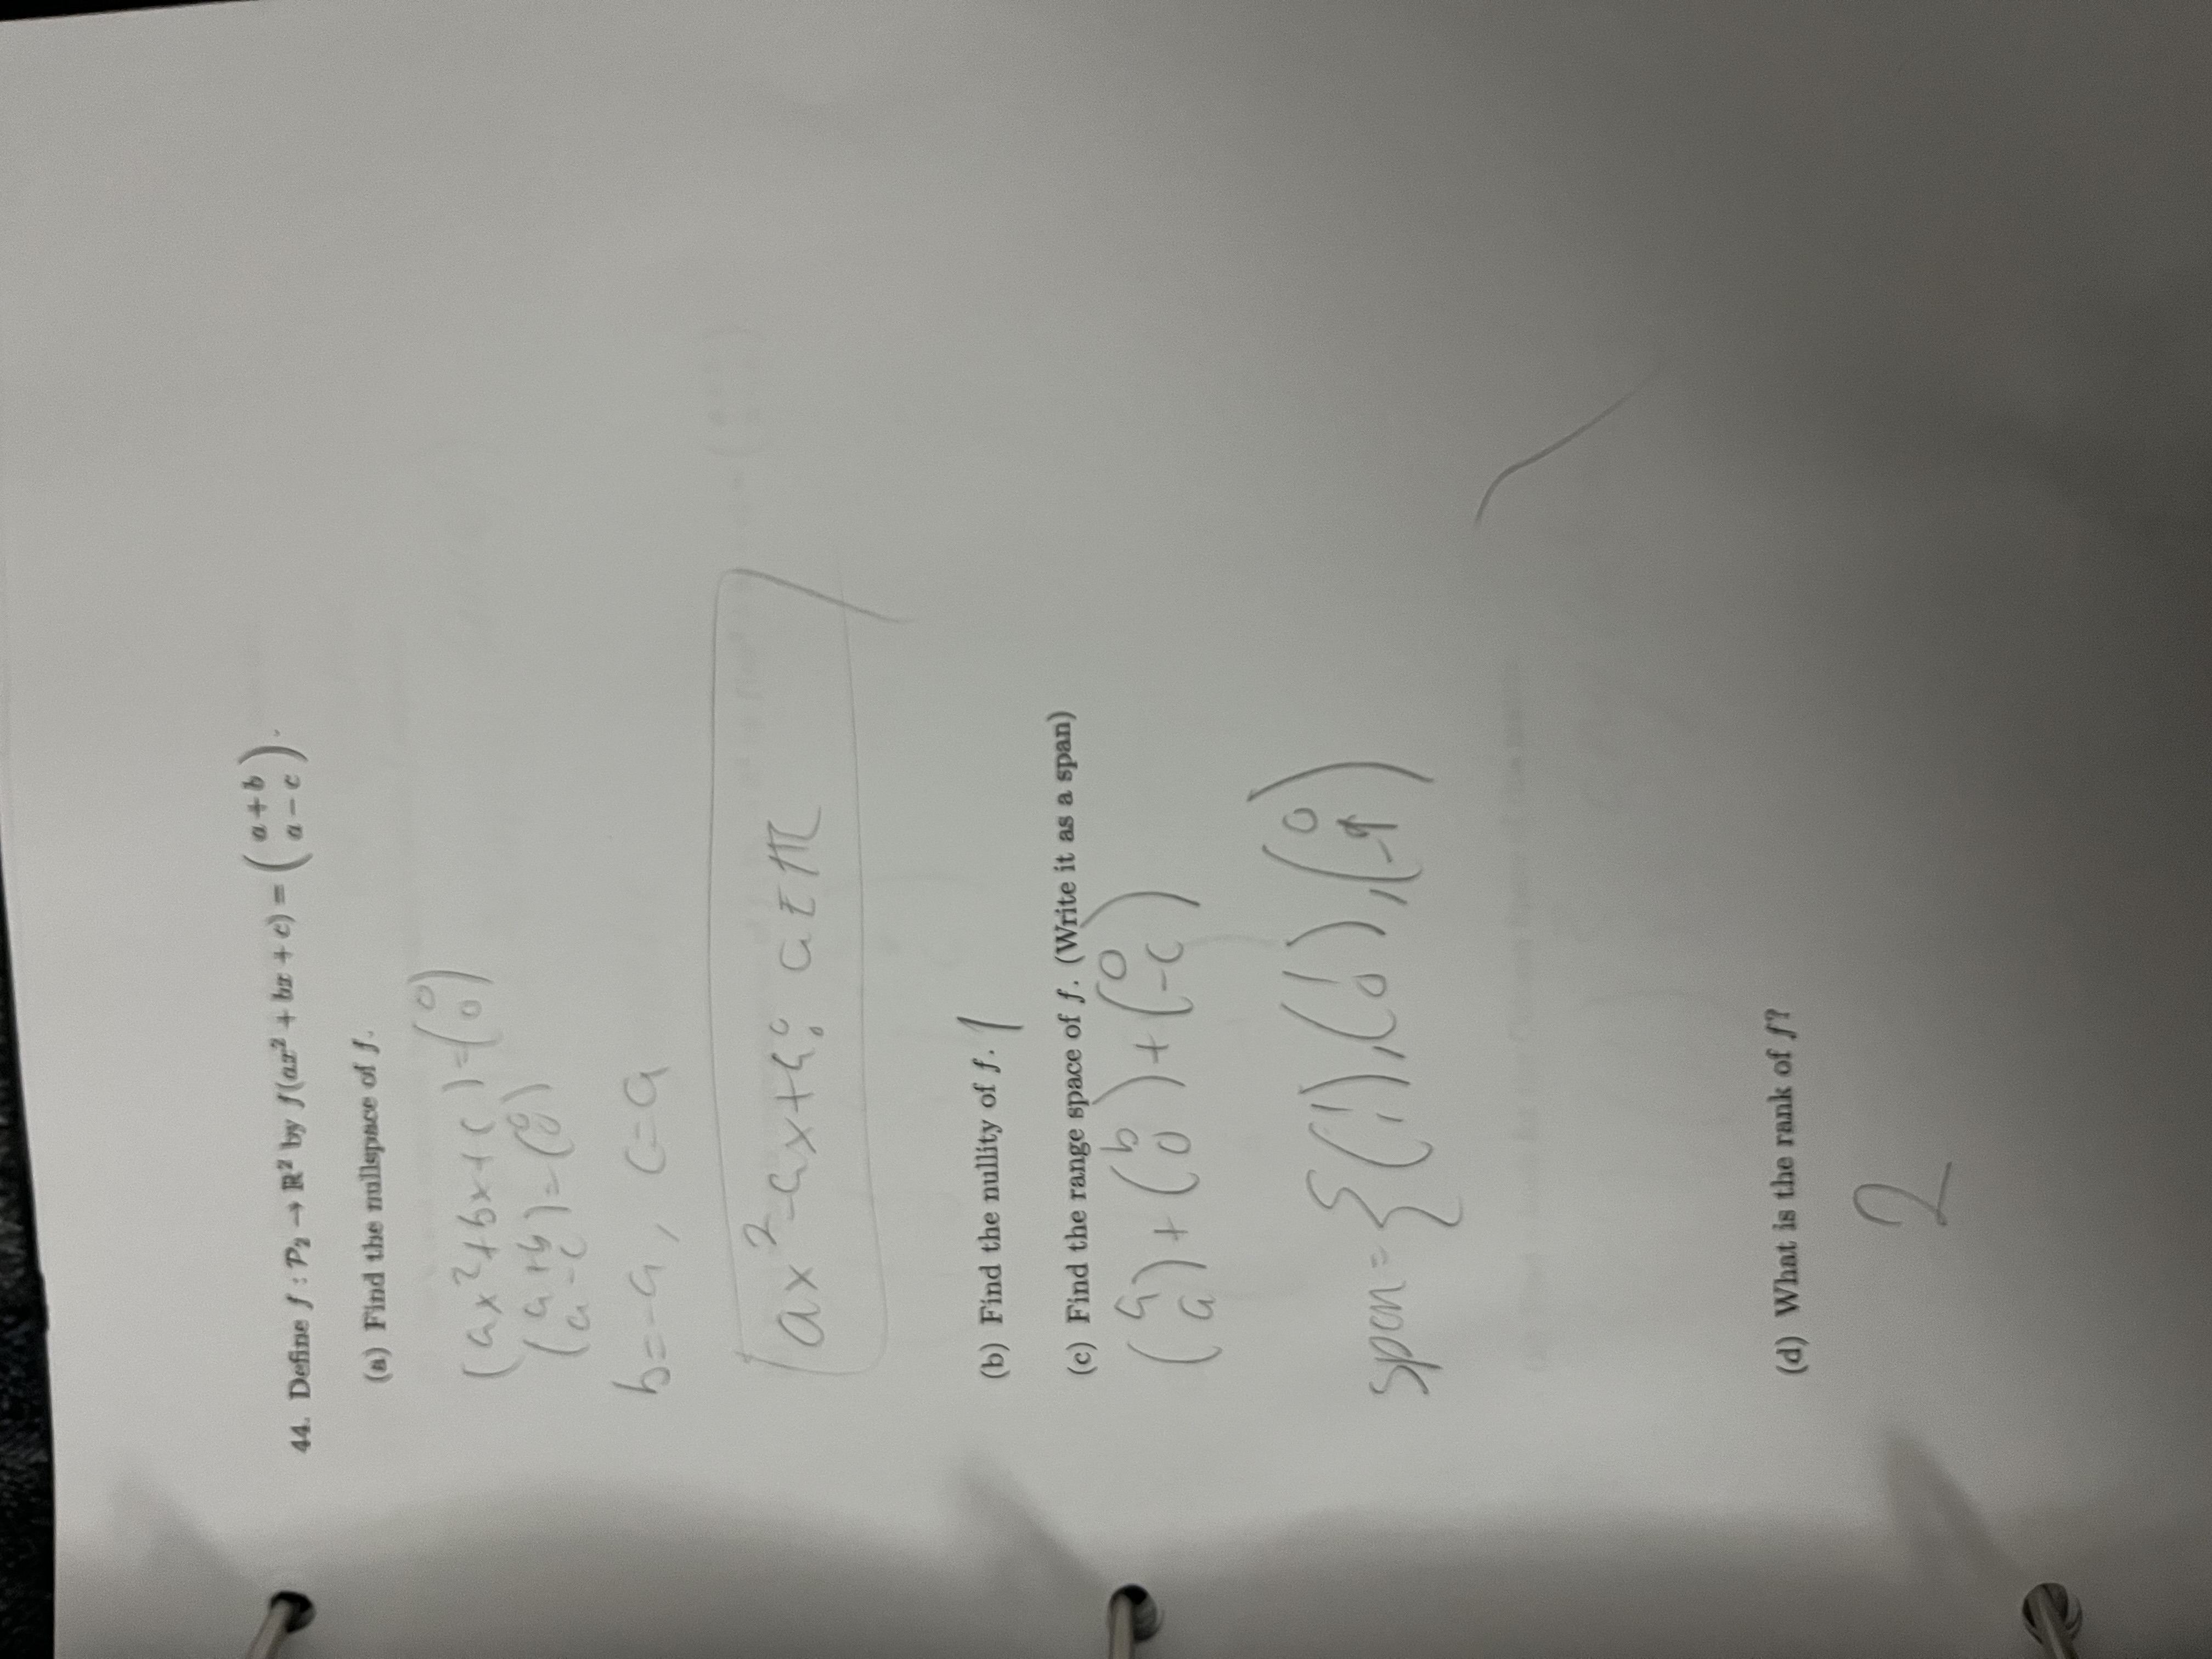 44. Define f : P₂ → ℝ² by f(ax² + bx + c) = ( a + b
a − c ).
(a) Find the nullspace of f.
(ax²+bx+c)=(0
0)
(a+b
a-c)=(0
0)
b=-a, c=a
ax²-ax+a: a∈ℝ
(b) Find the nullity of f. 1
(c) Find the range space of f. (Write it as a span)
(a
a)+(b
0)+(0
-c)
span={(1
1),(1
0),(0
-1)
(d) What is the rank of f?
2